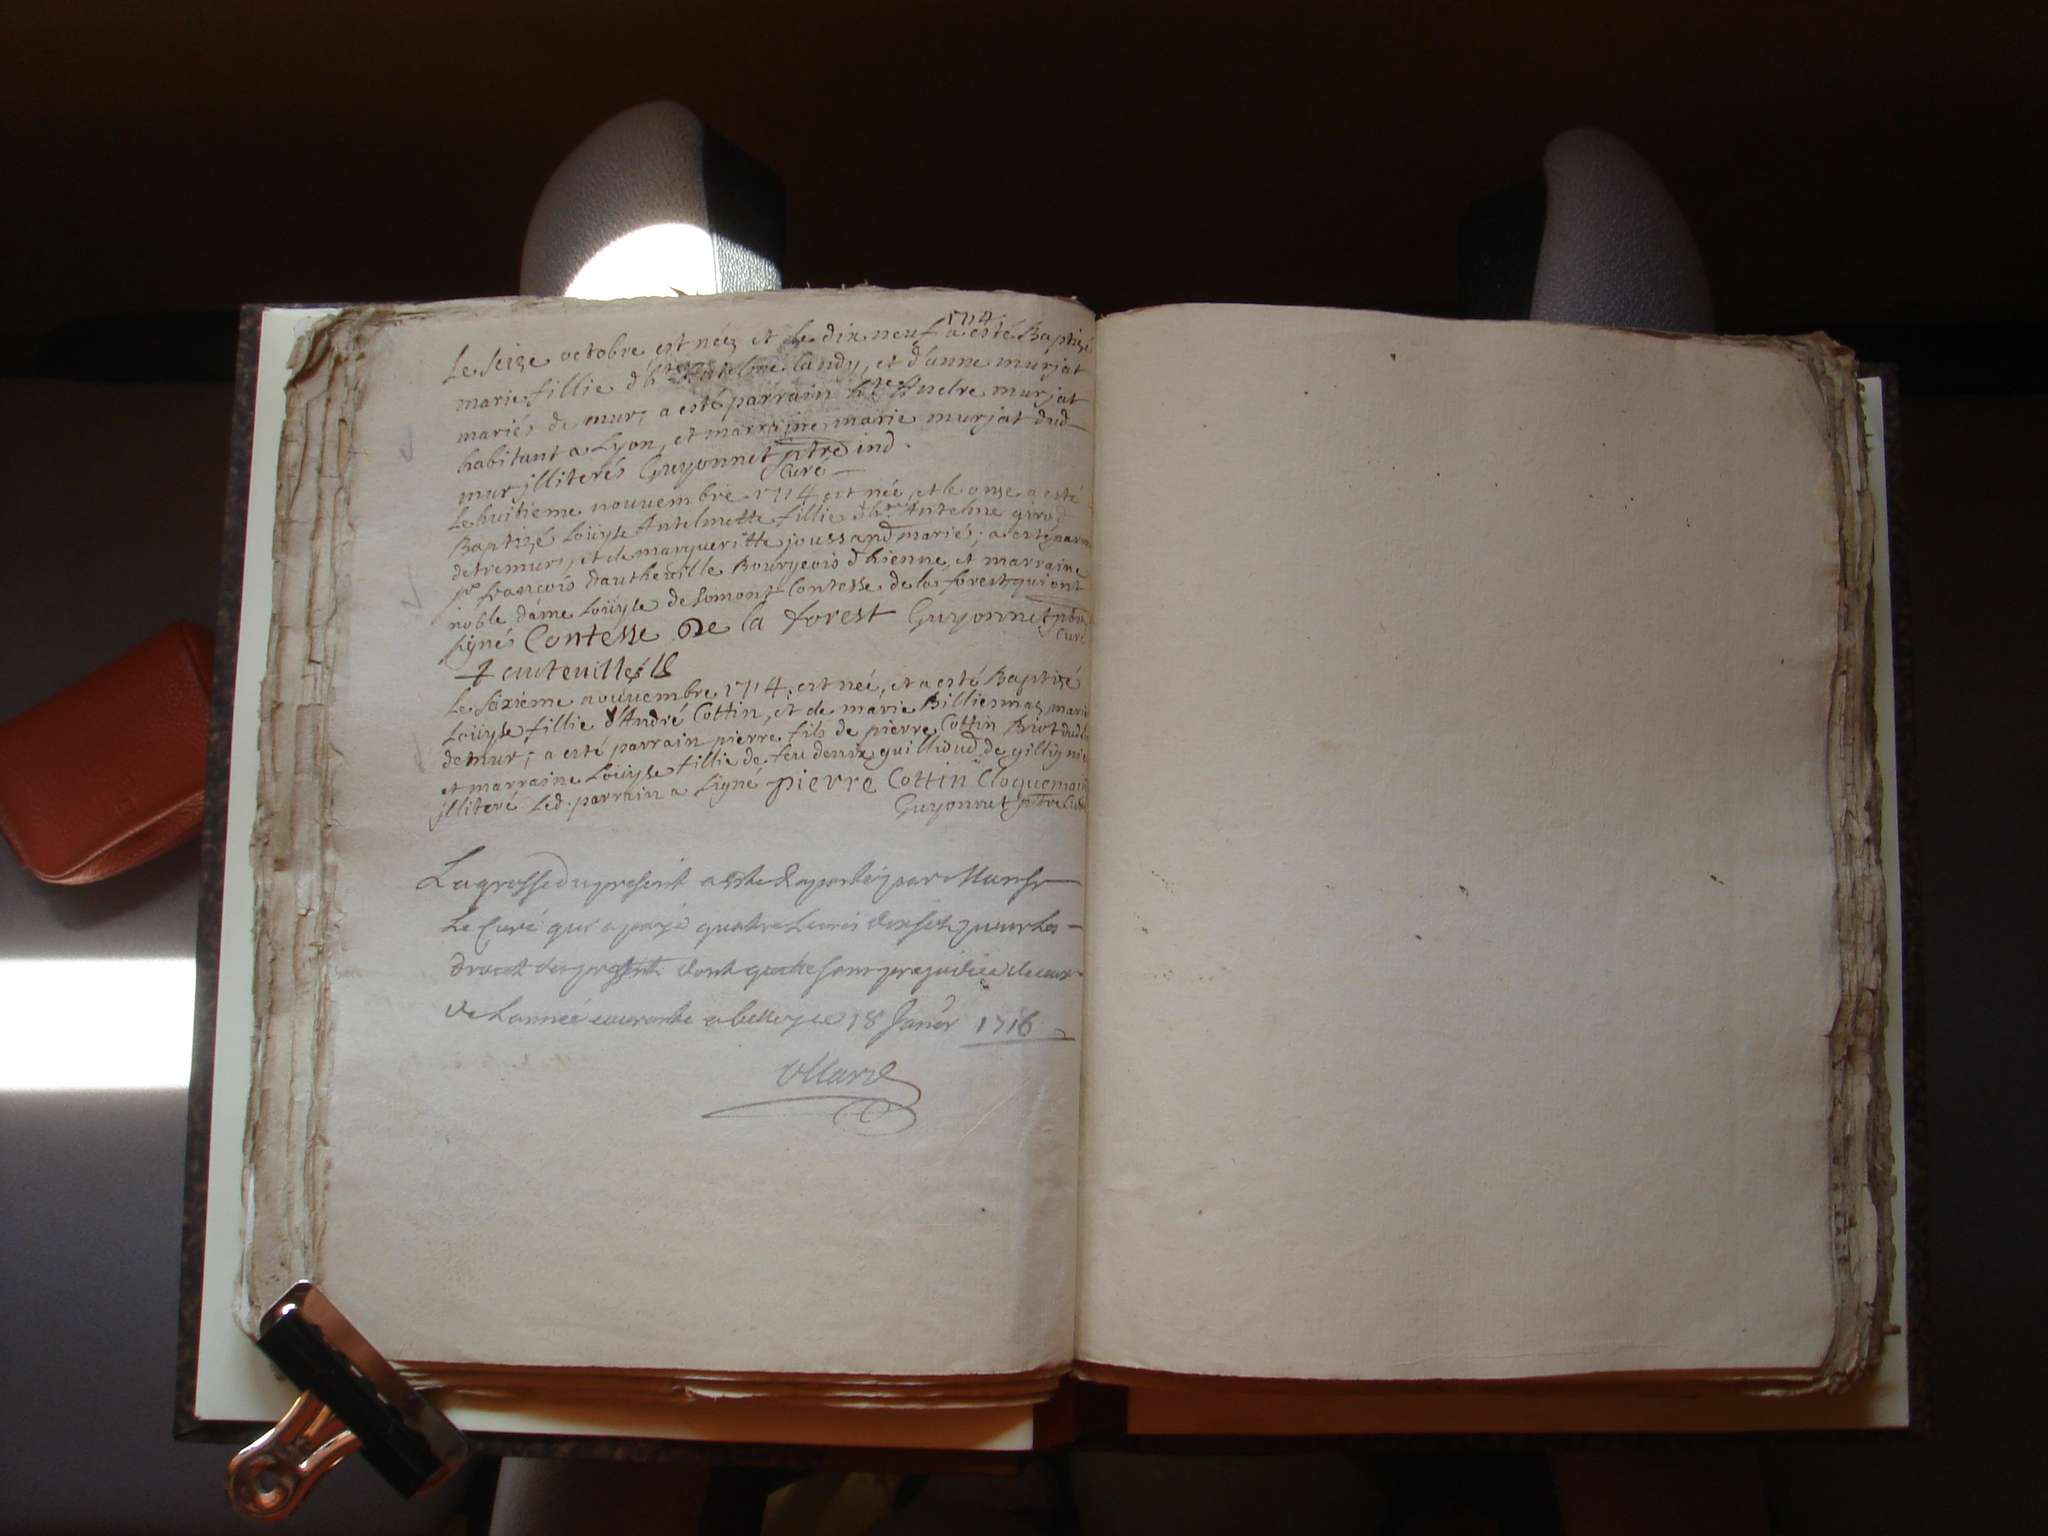 1714
Le seize octobre est néez et le dix neuf a esté Baptizé
marie fillie d'h.te Antelme landy, et d'anne murjat
mariés de mur; a esté parrain h.te Andre murjat
habitant a Lyon, et marraine marie murjat dud.
mur jlliterés Guyonnet ptre ind.
Curé
Le huitieme nouvembre 1714 est née, et le onze a esté
Baptizé Loüyse Antelmette fillie d'h.te Antelme girod
de tremur, et de margueritte joussand mariés; a esté parr
pr françois dautheville Bourgeois d'hienne, et marraine
noble dáme Loüyse de Lomont Contesse de la forest qui ont
signés Contesse De la forest Guyonnet ptre
Curé
Le seixieme nouvembre 1714, est neé, et a esté Baptizé
Loüyse fillie d'André Cottin, et de marie Billiemaz, mariés
de mur; a esté parrain pierre fils de pierre Cottin Briot dud.
et marraine Loüyse fillie de feu denix guilloud de gilligni
jlliteré led. parrain a signé pierre Cottin Cloquemain
Guyonnet ptre Curé
La grosse du present a esté raportée par Mons.r
Le Curé qui a payé quatre Livres dix sols pour Les
droits des presents dont quitte sans prejudice de ceux
de Lannée courante a belley ce 18 Janv.er 1716